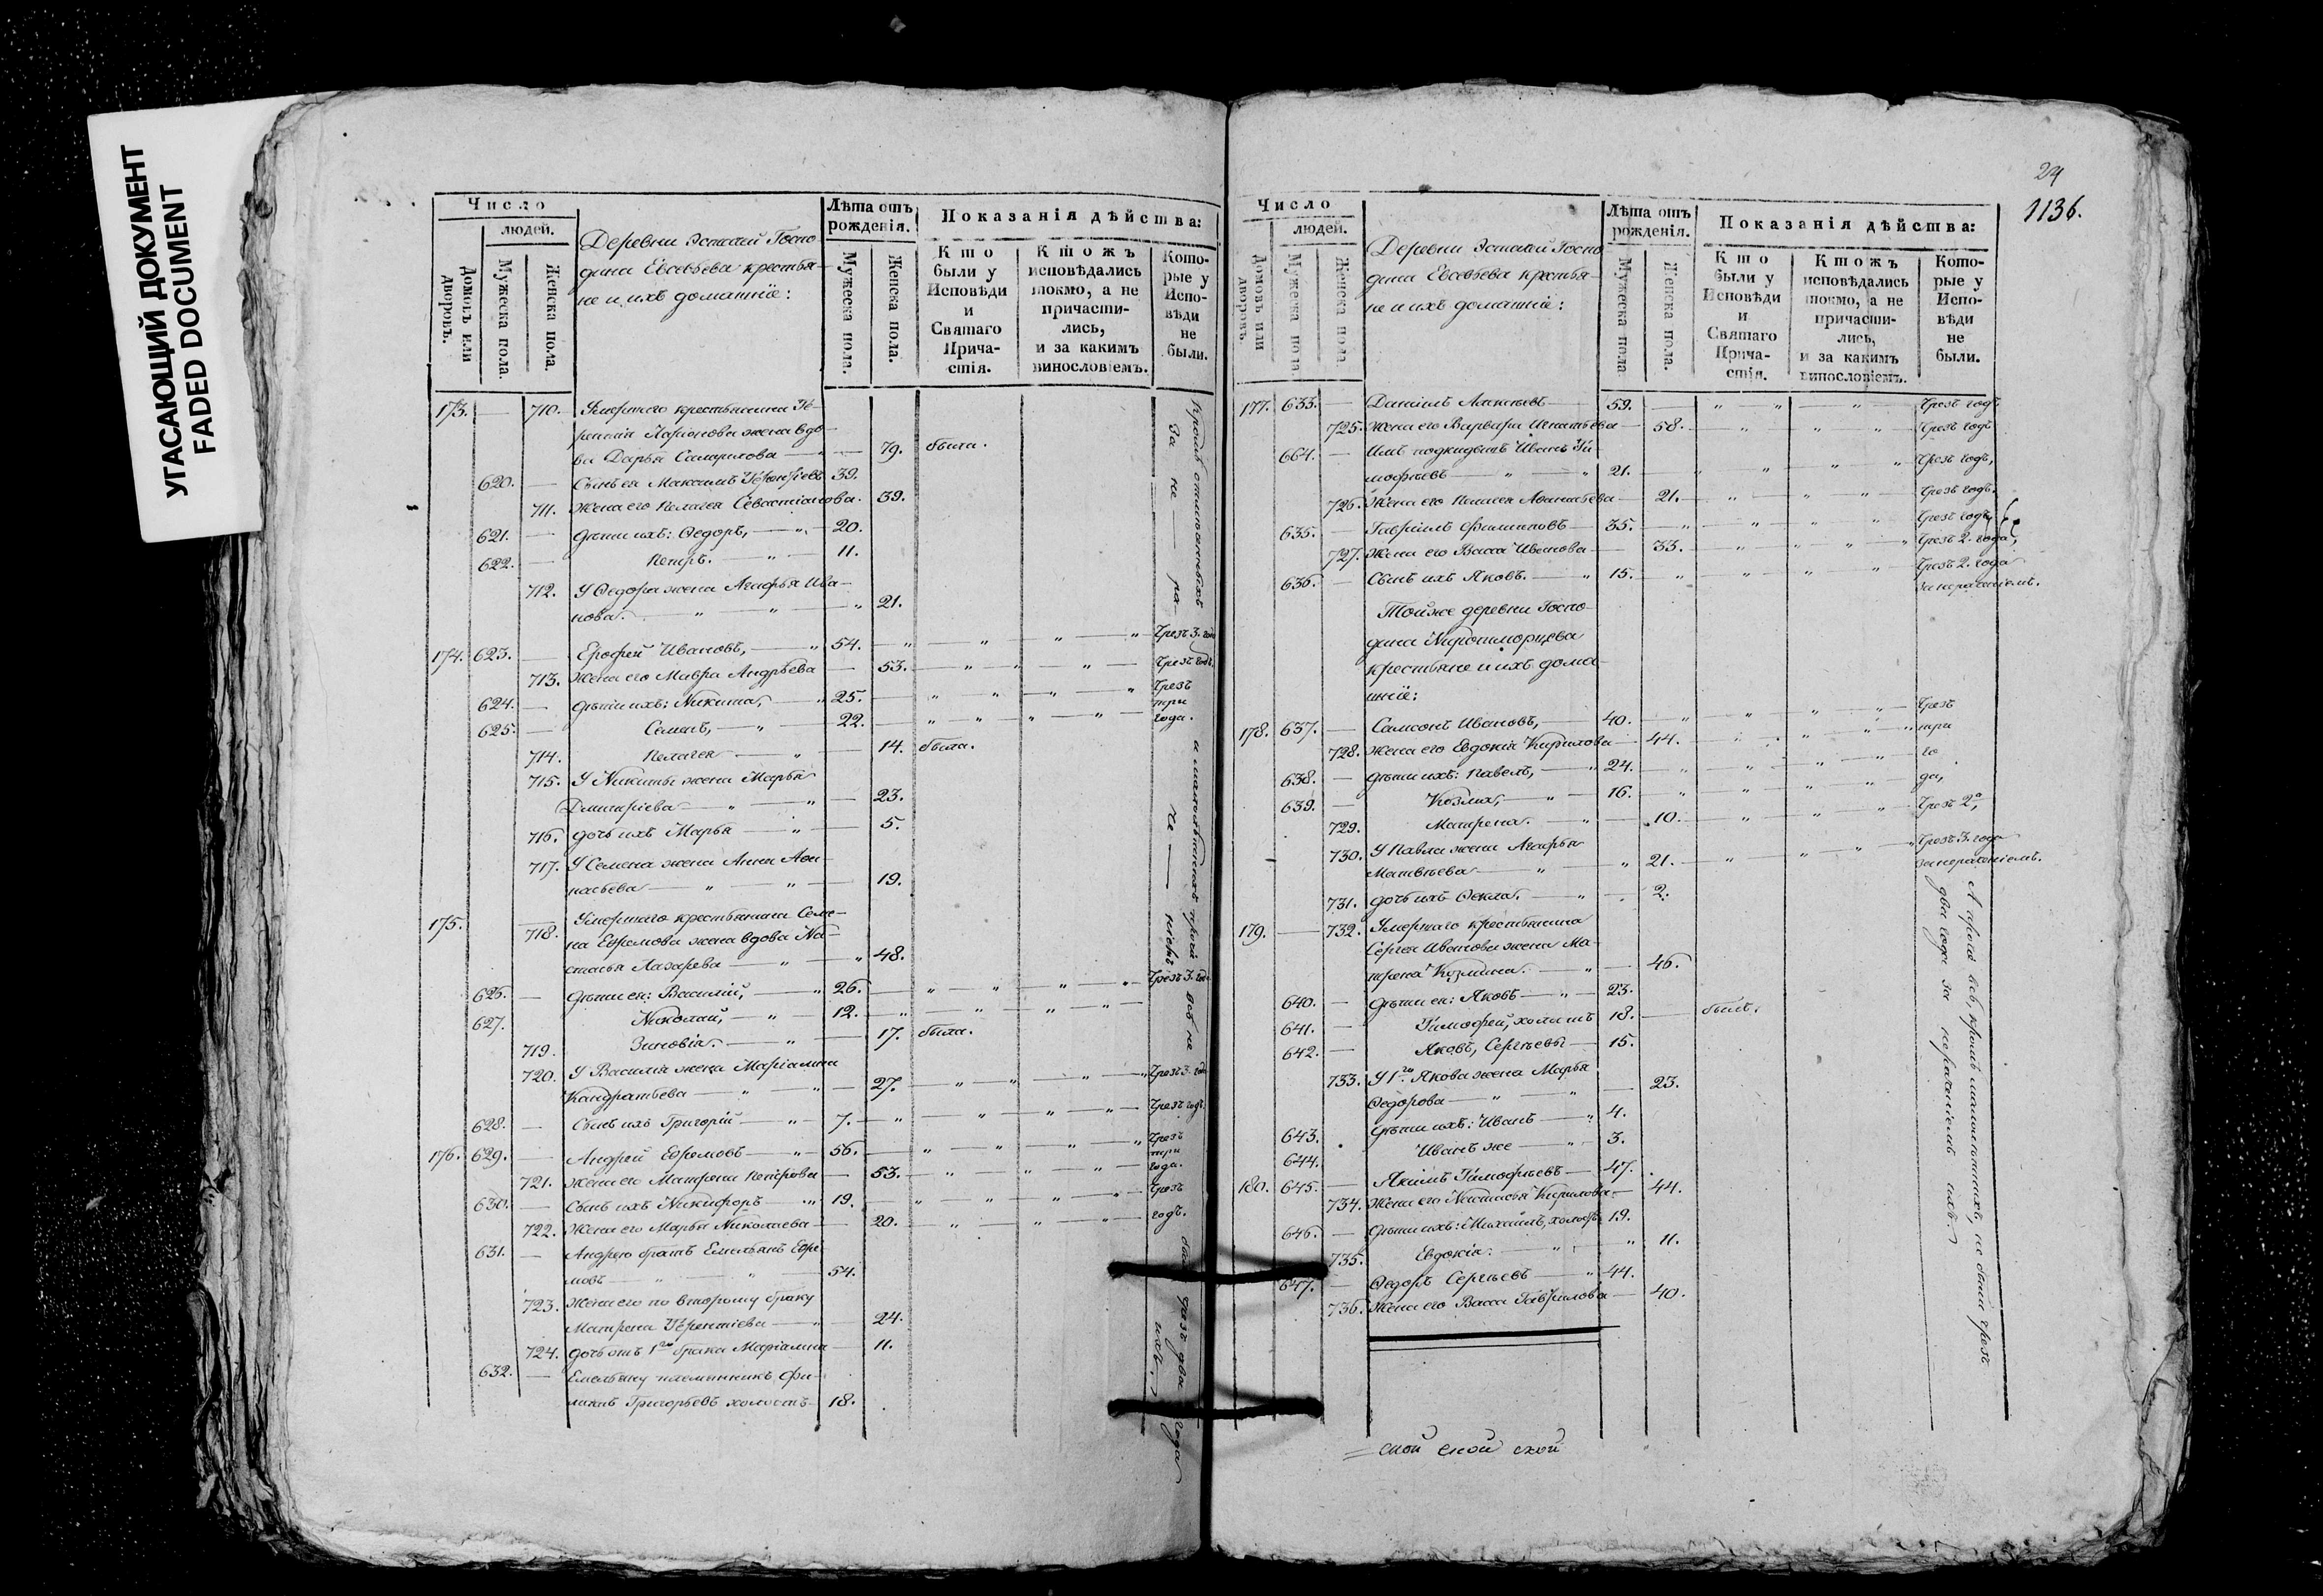 УГАСАЮЩИЙ ДОКУМЕНТ
FADED DOCUMENT
Число
людей.
Домовъ или дворовъ.
Мужеска пола.
Женска пола.
Деревни Госпо-
дина Евсевьева крестья-
не и ихъ домашнїе:
Лѣта отъ рожденія.
Мужеска пола.
Женска пола.
Показанія дѣйства:
Кто были у Исповѣди и Святаго Причастія.
Ктожъ исповѣдались токмо, а не причастились, и за какимъ винословіемъ.
Которые у Исповѣди не были.
173. — 710. Умершаго крестьянина
Ларіонова жена вдо-
ва Дарья — 79. была.
620. — Сынъ ея Максимъ 39.
711. Жена его Пелагея Севастіанова. 39.
621. — Дѣти ихъ: Ѳедоръ, — 20.
622. — Петръ. — 11.
712. У Ѳедора жена Агафья Ива-
нова. — 21.
174. 623. — Ерофей Ивановъ, — 54. — Чрезъ 3. года
713. Жена его Мавра Андрѣева — 53. — Чрезъ годъ.
624. — Дѣти ихъ: Никита, — 25. — Чрезъ
три
625. — Семенъ, — 22. — года.
714. Пелагея — 14. была.
715. У Никиты жена Марья
Дмитріева — 23.
716. Дочь ихъ Марья — 5.
717. У Семена жена Анна Аѳа-
насьева — 19.
175. — 718. Умершаго крестьянина Семе-
на Ефремова жена вдова На-
стасья Лазарева — 48.
626. — Дѣти ея: Василій, — 26. — Чрезъ 3. года
627. Николай, — 12.
719. Зиновія. — 17. была.
720. У Василія жена Маріамна
Кандратьева — 27. — Чрезъ 3. года
628. — Сынъ ихъ Григорій — 7. — Чрезъ годъ.
176. 629. — Андрей Ефремовъ — 56. — Чрезъ
три
721. Жена его Матрена Петрова — 53. — года.
630. — Сынъ ихъ Никифоръ 19. — Чрезъ
722. Жена его Марья Николаева — 20. — годъ.
631. — Андрею братъ Емельянъ Ефре-
мовъ — 54.
723. Жена его по второму браку
Матрена Терентіева — 24.
724. Дочь отъ 1го брака Маріамна — 11.
632. — Емельяну племянникъ Фи-
липъ Григорьевъ холостъ — 18.
24
1136.
Число
людей.
Домовъ или дворовъ.
Мужеска пола.
Женска пола.
Деревни Госпо-
дина Евсевьева крестья-
не и ихъ домашнїе:
Лѣта отъ рожденія.
Мужеска пола.
Женска пола.
Показанія дѣйства:
Кто были у Исповѣди и Святаго Причастія.
Ктожъ исповѣдались токмо, а не причастились, и за какимъ винословіемъ.
Которые у Исповѣди не были.
177. 633. — Даніилъ Алексѣевъ — 59. — Чрезъ годъ
725. Жена его Варвара Игнатьева — 58. — Чрезъ годъ
664. — Имъ подкидышъ Иванъ Ти-
мофѣевъ — 21. — Чрезъ годъ,
726. Жена его Пелагея Аѳанасьева — 21. — Чрезъ годъ.
635. — Гавріилъ Филиповъ — 35. — Чрезъ годъ,
727. Жена его Васса Иванова — 33. — Чрезъ 2. года,
636. — Сынъ ихъ Яковъ. — 15. — Чрезъ 2. года
за нераченіемъ.
Той же деревни Госпо-
дина
крестьяне и ихъ дома-
шнїе:
178. 637. — Самсонъ Ивановъ, — 40. — Чрезъ
728. Жена его Евдокія Кирилова — 44. — три
638. — Дѣти ихъ: Павелъ, — 24. — го
639. — Козма, — 16. — да,
729. Матрена. — 10. — Чрезъ 2а,
730. У Павла жена Агафья
Матвѣева — 21. — Чрезъ 3. года
за нераченіемъ.
731. Дочь ихъ Ѳекла. — 2.
179. — 732. Умершаго крестьянина
Сергея Иванова жена Ма-
трена Козмина. — 46.
640. — Дѣти ея: Яковъ — 23.
641. — Тимофей, холостъ 18. — былъ.
642. — Яковъ, Сергѣевы — 15.
733. У 1го Якова жена Марья
Ѳедорова — 23.
643. Дѣти ихъ: Иванъ — 4.
644. Иванъ же — 3.
180. 645. — Якимъ Тимофѣевъ — 47.
734. Жена его Настасья Кирилова. — 44.
646. — Дѣти ихъ: Михаилъ, холостъ 19.
735. Евдокія. — 11.
647. — Ѳедоръ Сергѣевъ — 44.
736. Жена его Васса Гаврилова — 40.
А прочія всѣ, кромѣ малолѣтнихъ, не были чрезъ
два года за нераченіемъ ихъ
ской ской ской